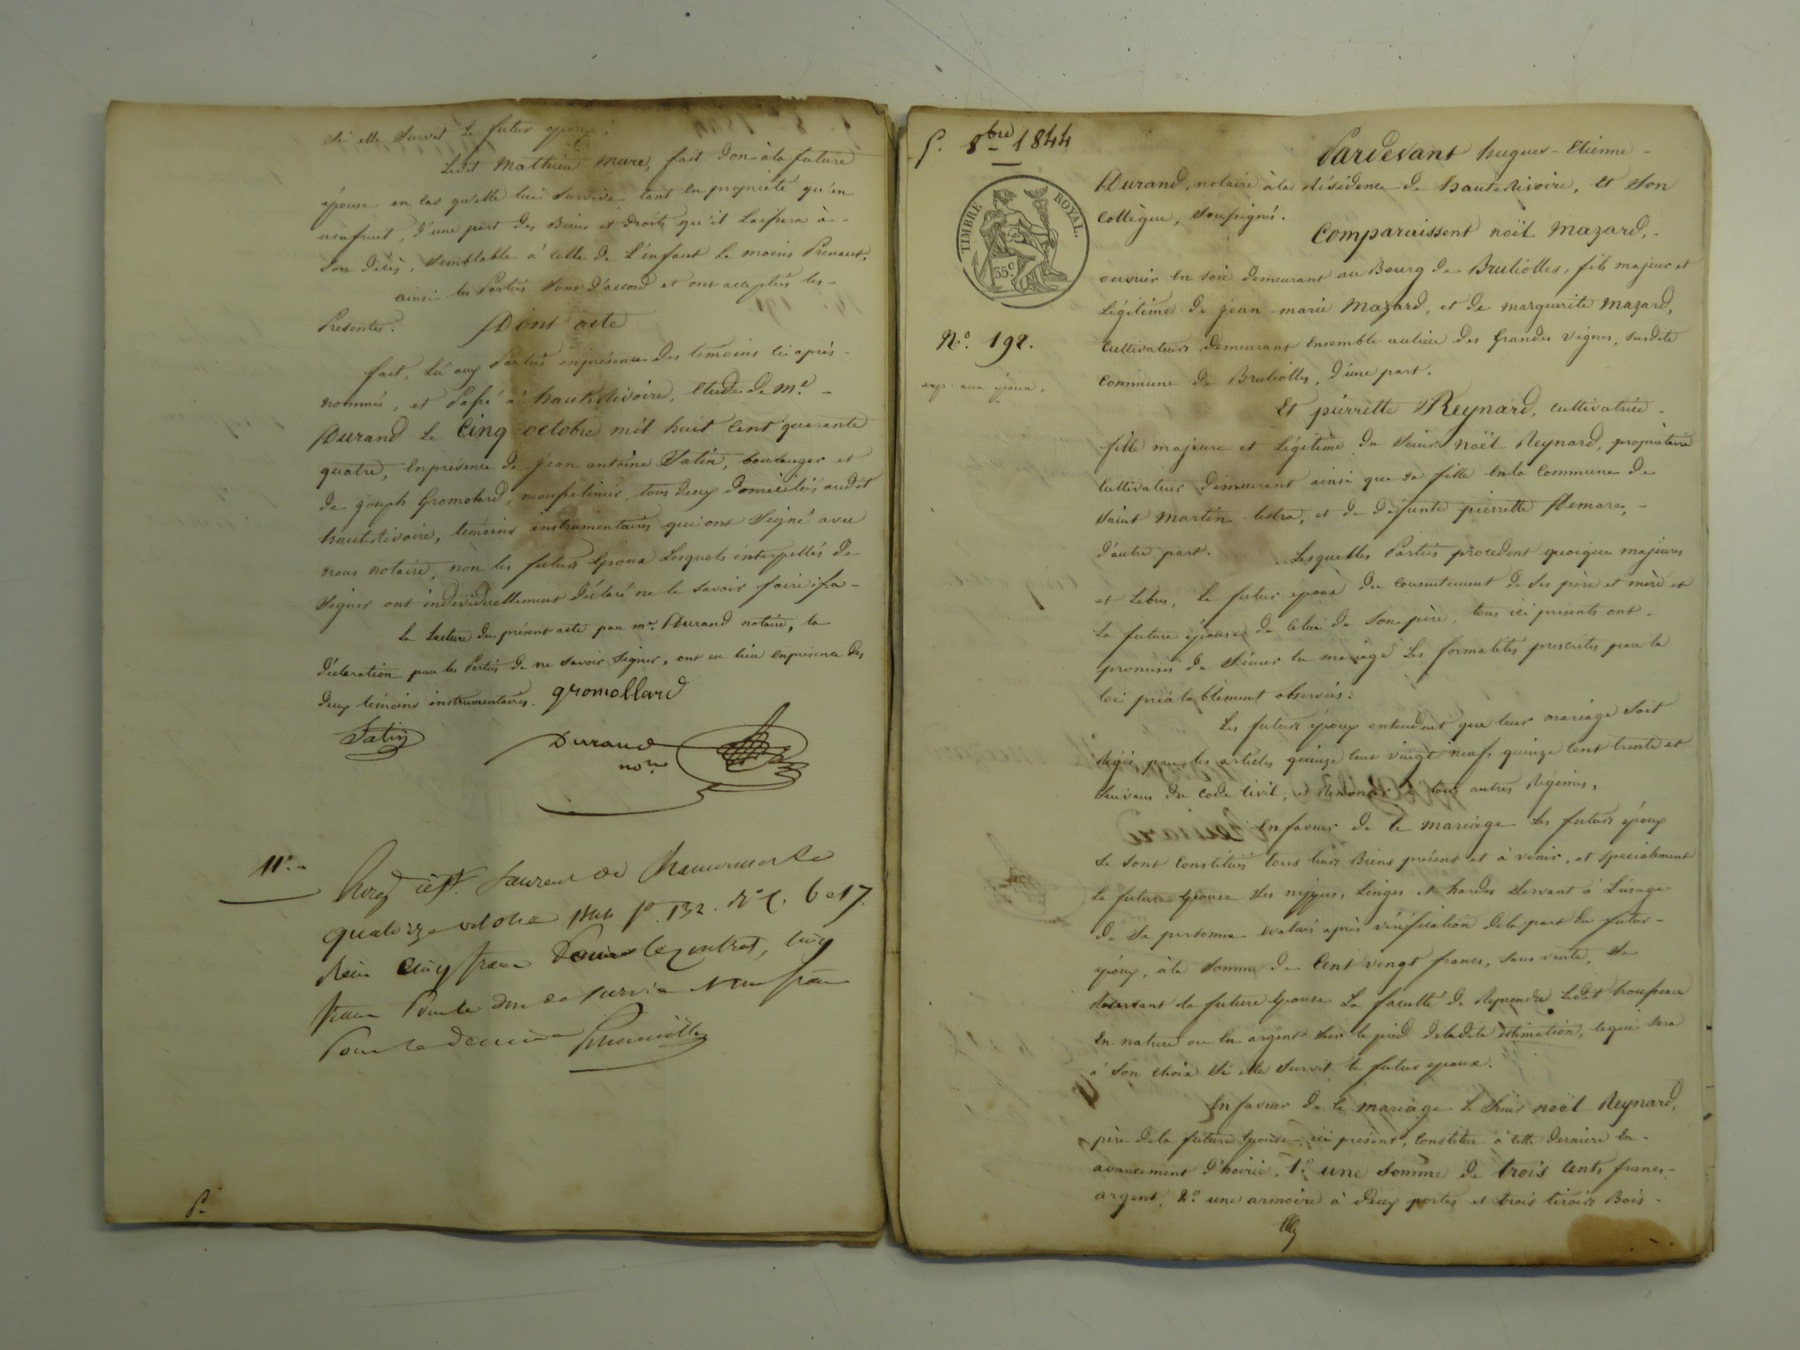 si elle survit le futur époux.
Ledit Mathieu Mure, fait don à la future
épouse en cas qu'elle lui survive tant en propriété qu'en
usufruit, d'une part des Biens et droits qu'il laissera à
son décès, semblable à celle de L'enfant le moins Prenant.
ainsi les Parties sont d'accord et ont acceptés les
Presentes. Dont acte
fait, Lu aux Parties enprésence des temoins ci après
nommés, et Passé à hauterivoire, étude de Me.
Durand Le Cinq octobre mil huit Cent quarante
quatre, Enprésence de jean antoine Satin, boulanger et
de joseph Gromolard, tous deux domiciliés audit
hauterivoire, témoins instrumentaires qui ont Signé avec
nous notaire, non les futurs époux Lesquels interpellés de
signer ont individuellement déclaré ne le savoir faire
La Lecture du présent acte par me. Durand notaire, la
déclaration par les Parties de ne savoir signer, ont eu lieu enprésence des
deux témoins instrumentaires. gromollard
Satin
Durand
nore
11.
St Laurent de Chamousset le
quatorze octobre 1844 fo. 132. Ro C. 6 et 7.
Reçu cinq francs Pour le Contrat, cinq
francs Pour le don de survie et un franc
Pour le décime
P.
5. 8bre 1844
TIMBRE ROYAL.
35c
No. 192.
Pardevant hugues-Etienne
Durand, notaire à la Résidence de hauterivoire, et son
Collègue, soussignés.
Comparaissent noël Mazard,
ouvrier en soie demeurant au Bourg de Brulliolles, fils majeur et
Légitime de jean-marie Mazard, et de marguerite Mazard,
Cultivateurs demeurant Ensemble aulieu des Grandes vignes, susdite
Commune de Brulliolles, d'une part.
Et pierrette Reynard, cultivatrice
fille majeure et Légitime du Sieur noël Reynard, propriétaire
Cultivateur demeurant ainsi que sa fille En la Commune de
saint Martin-lestra, et de défunte pierrette Demare,
d'autre part. Lesquelles Parties procèdent quoique majeures
et Libres, Le futur époux du consentement de ses père et mère et
La future épouse de celui de son père, tous ici présents ont
promis de s'unir En mariage Les formalités prescrites par la
loi préalablement observées.
Les futurs époux entendent que leur mariage soit
Régis par les articles quinze cent vingt neuf, quinze cent trente et
suivans du Code Civil, et Renoncer à tous autres Régimes.
En faveur de ce mariage les futurs époux
se sont Constitués tous leurs Biens présens et à venir, et spécialement
La future épouse ses nippes, Linges et hardes servant à L'usage
de sa personne evalués après vérification dela part du futur
époux, àla somme de Cent vingt francs, sans vente, se
Réservant la future épouse La faculté de Reprendre Ledit trousseau
En nature ou En argent sur le pied deladite estimation, cequi sera
à son choix si elle survit le futur époux.
En faveur de ce mariage Le Sieur noël Reynard,
père dela future épouse, ici présent, Constitue à cette dernière En
avancement d'hoirie, 1o. une somme de trois cents francs
argent, 2o. une armoire à deux portes et trois tiroirs Bois